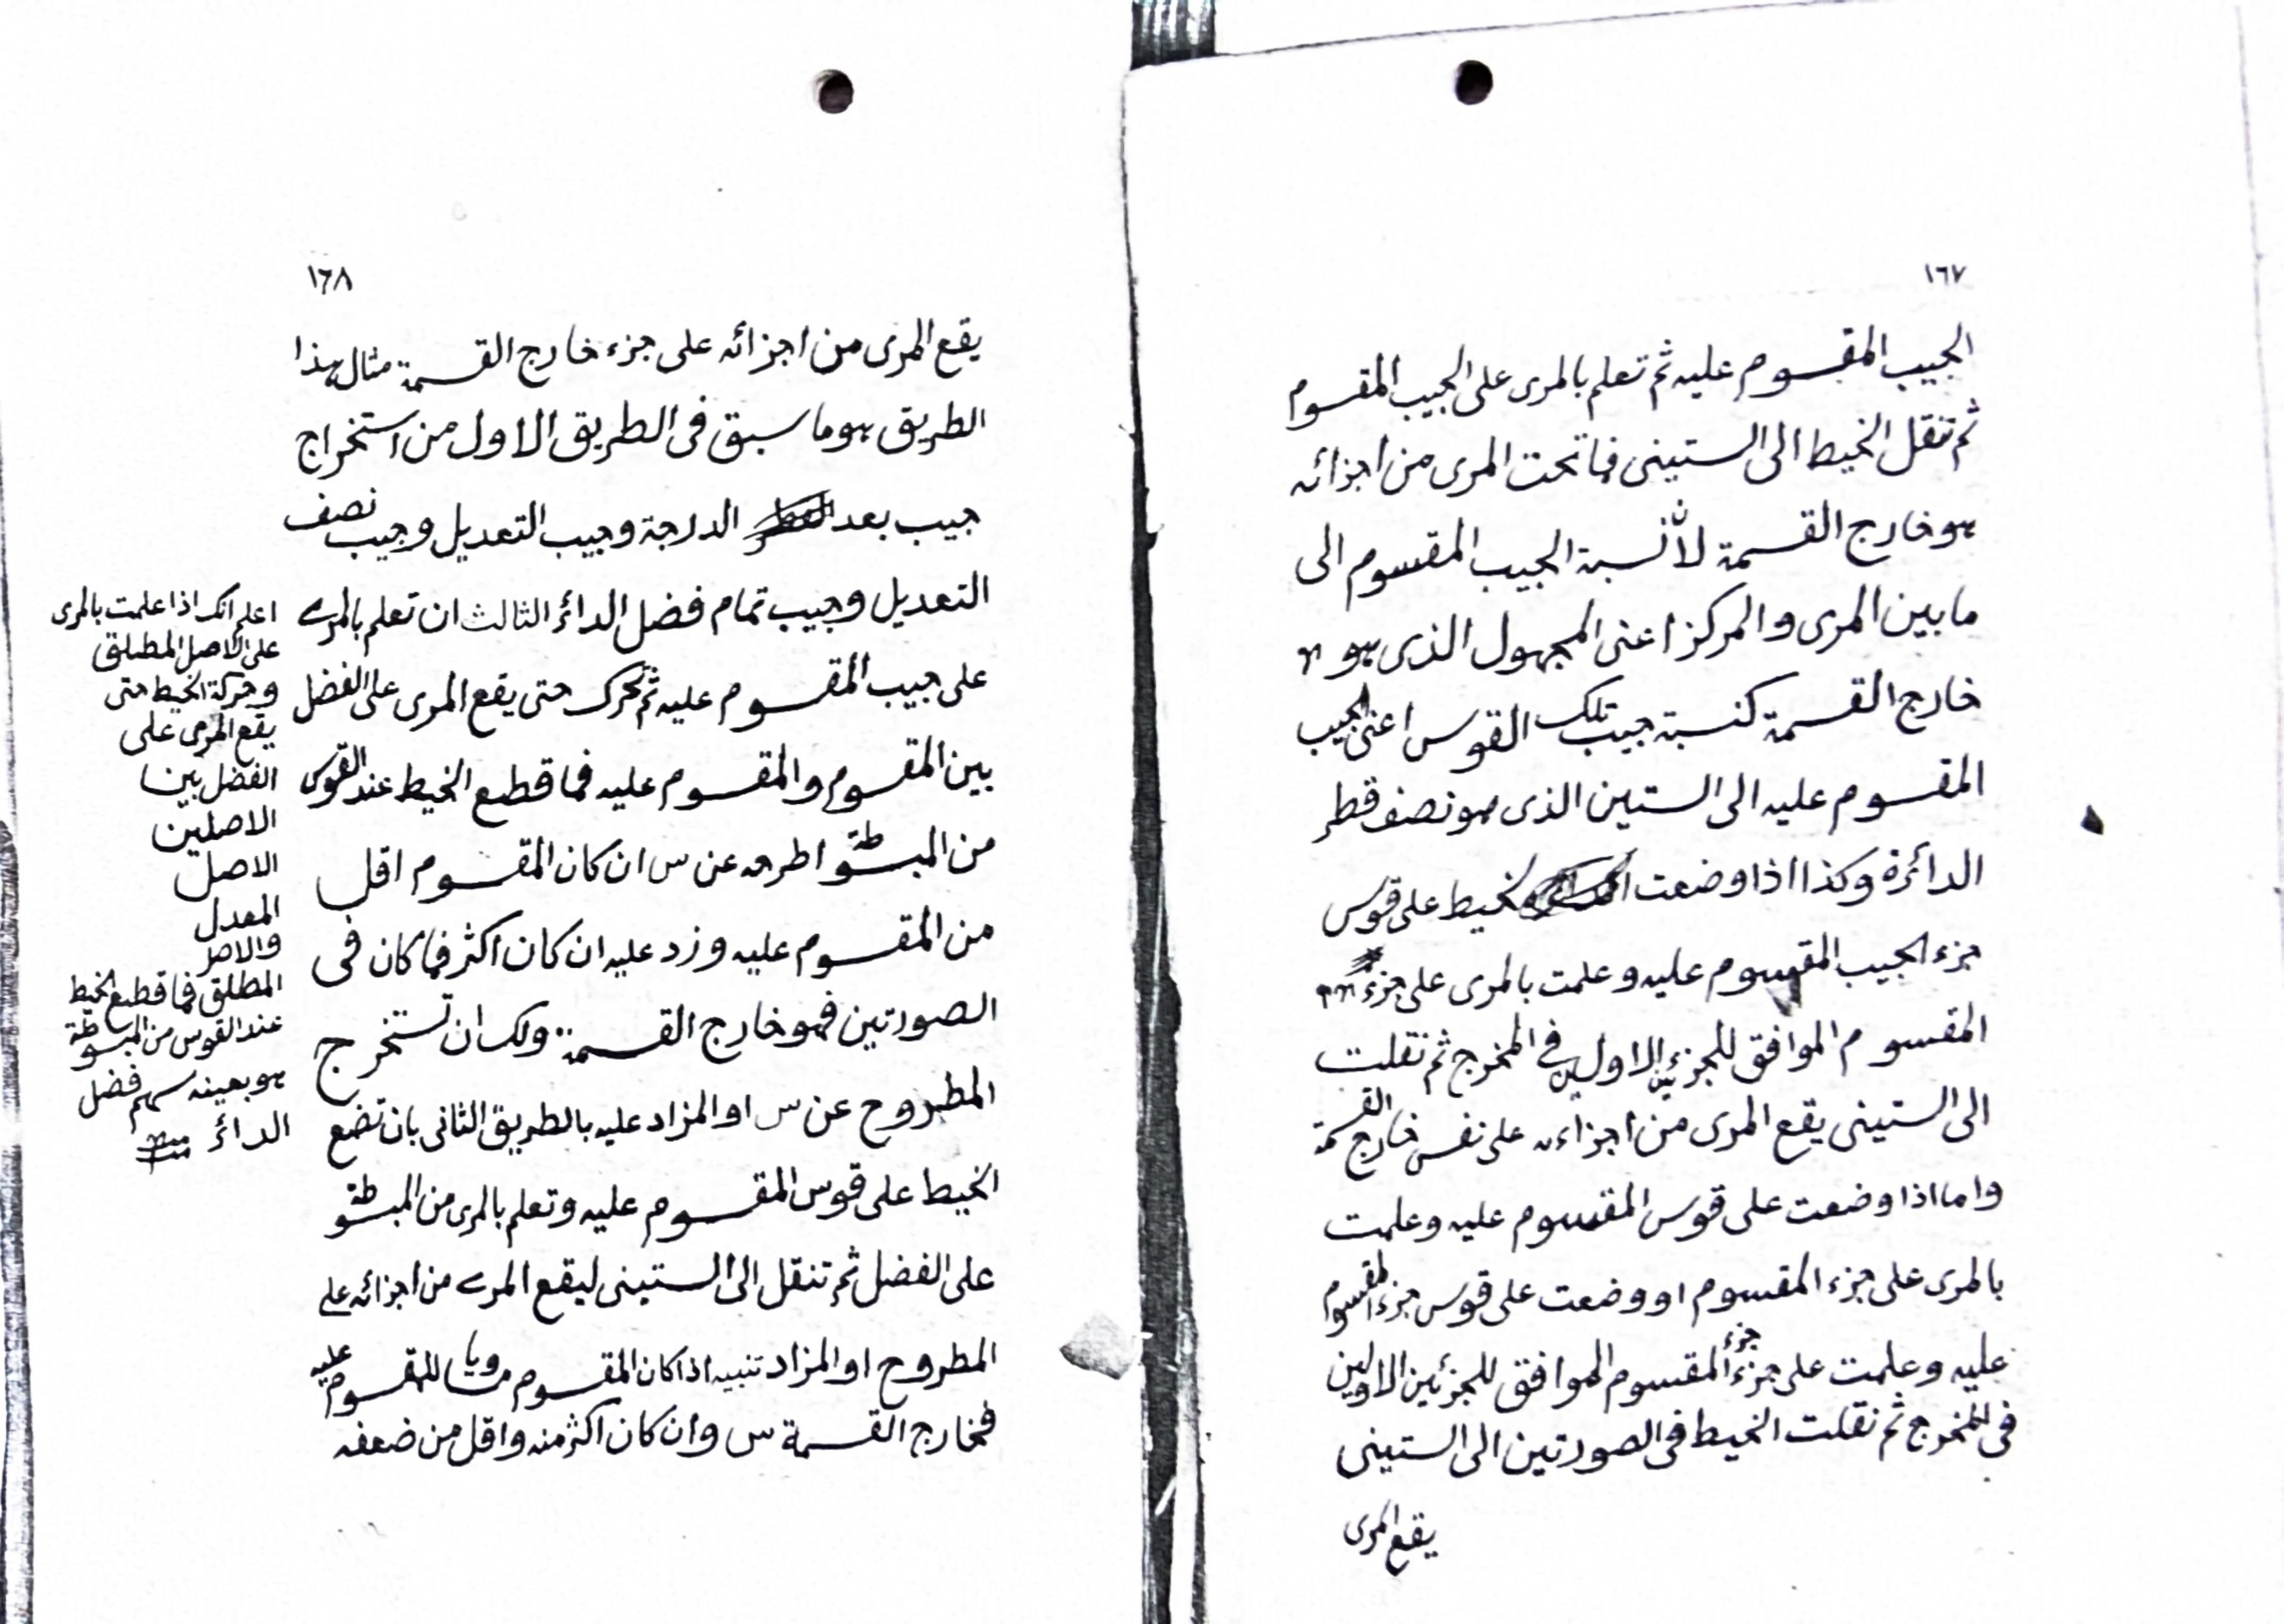 ١٦٧
الجيب المقسوم عليه ثم تعلم بالمرى على الجيب المقسوم
ثم تنقل الخيط الى الستينى فما تحت المرى من اجزائه
هو خارج القسمة لأن نسبة الجيب المقسوم الى
ما بين المرى والمركز اعنى المجهول الذى هو
خارج القسمة كنسبة جيب تلك القوس اعنى الجيب
المقسوم عليه الى الستين الذى هو نصف قطر
الدائرة وكذا اذا وضعت الخيط على قوس
جزء الجيب المقسوم عليه وعلمت بالمرى على جزء
المقسوم الموافق للجزئين الاولين فى المخرج ثم نقلت
الى الستينى يقع المرى من اجزاءه على نفس خارج القسمة
واما اذا وضعت على قوس المقسوم عليه وعلمت
بالمرى على جزء المقسوم او وضعت على قوس جزء المقسوم
عليه وعلمت على جزء جزء المقسوم الموافق للجزئين الاولين
فى المخرج ثم نقلت الخيط فى الصورتين الى الستينى
يقع المرى
١٦٨
يقع المرى من اجزائه على جزء خارج القسمة مثال هذا
الطريق هو ما سبق فى الطريق الاول من استخراج
جيب بعد الدرجة وجيب التعديل وجيب نصف
التعديل وجيب تمام فضل الدائر الثالث ان تعلم بالمرى
على جيب المقسوم عليه ثم تحرك حتى يقع المرى على الفضل
بين المقسوم والمقسوم عليه فما قطع الخيط عند القوس
من المبسوطة اطرحه عن س ان كان المقسوم اقل
من المقسوم عليه وزد عليه ان كان اكثر فما كان فى
الصورتين فهو خارج القسمة ولك ان تستخرج
المطروح عن س او المزاد عليه بالطريق الثانى بان تضع
الخيط على قوس المقسوم عليه وتعلم بالمرى من المبسوطة
على الفضل ثم تنقل الى الستينى ليقع المرى من اجزائه على
المطروح او المزاد تنبيه اذا كان المقسوم مساويا للمقسوم عليه
فخارج القسمة س وان كان اكثر منه واقل من ضعفه
اعلم انك اذا علمت بالمرى
على الاصل المطلق
وحركة الخيط حتى
يقع المرى على
الفضل بين
الاصلين
الاصل
المعدل
والاصل
المطلق فما قطع الخيط
عند القوس من المبسوطة
هو بعينه سهم فضل
الدائر منه